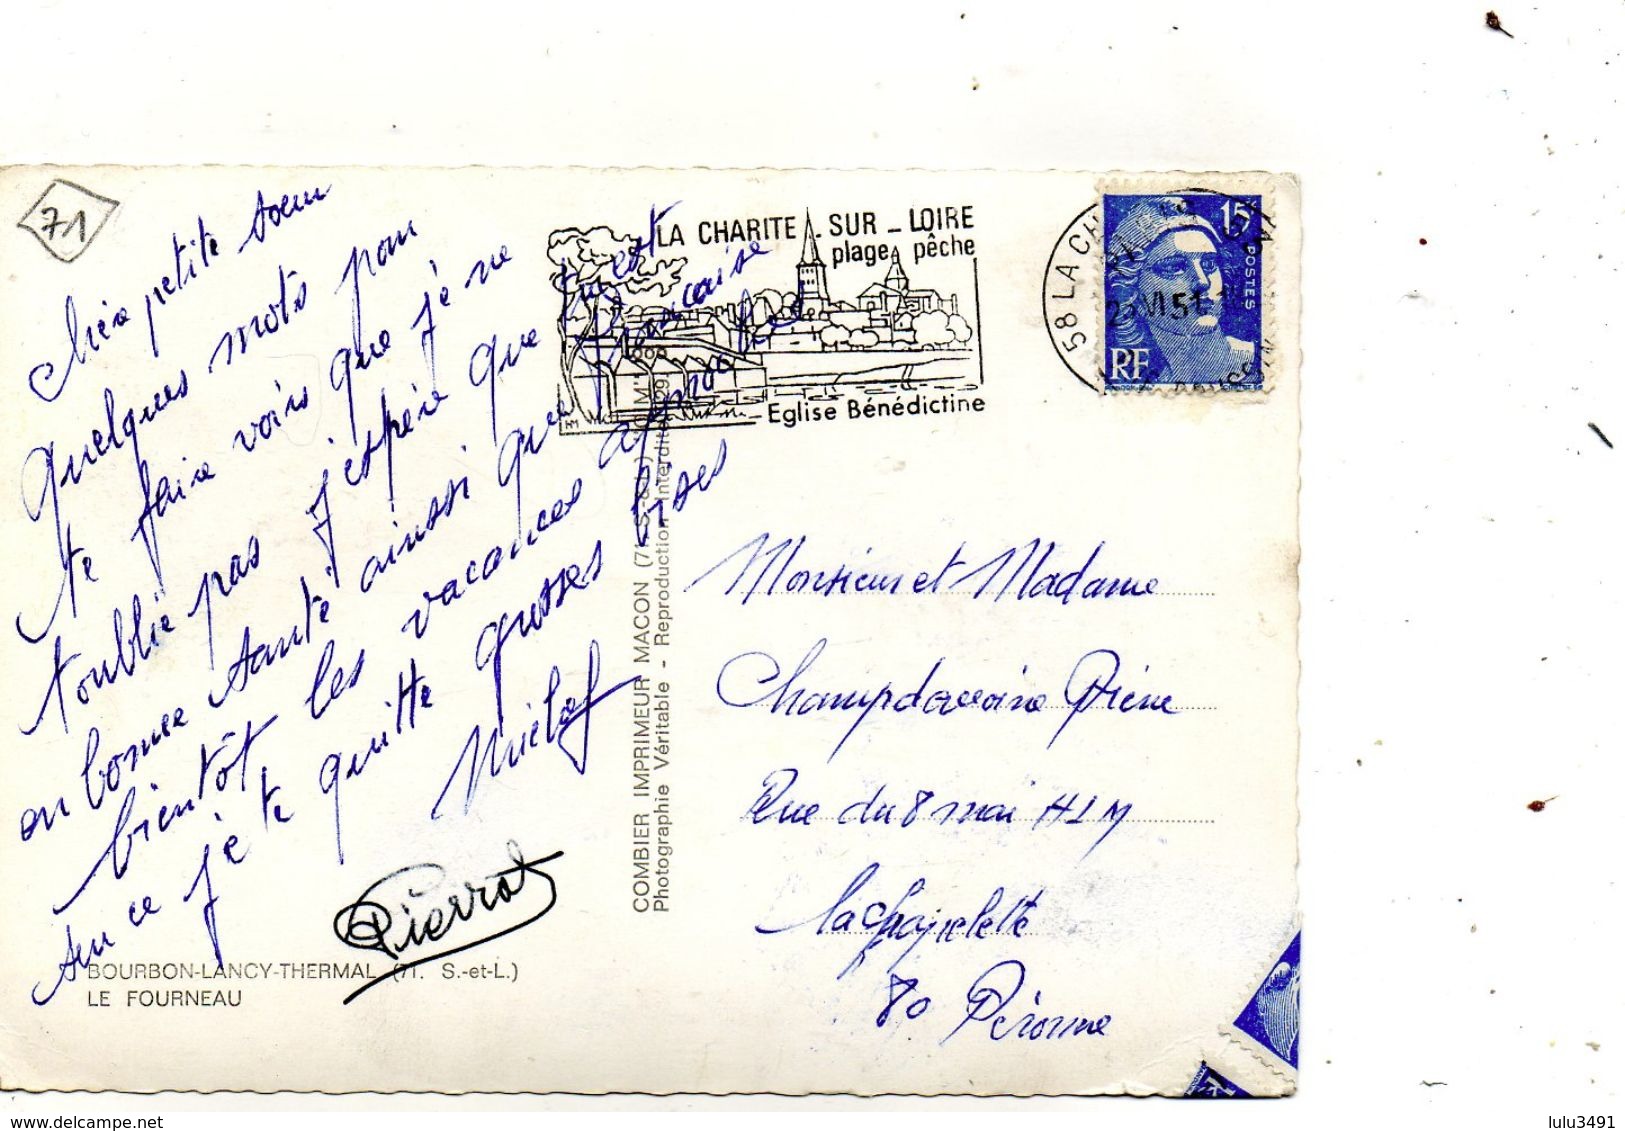 71
Chère petite sœur
Quelques mots pour
te faire voir que je ne
t'oublie pas j'espère que tu est
en bonne santé ainsi que Françoise
bientôt les vacances approche
sur ce je te quitte grosses bises
Pierrot
BOURBON-LANCY-THERMAL (71. S.-et-L.)
LE FOURNEAU
COMBIER IMPRIMEUR MACON (71 S.-&-L.)
Photographie Véritable - Reproduction Interdite
LA CHARITE - SUR - LOIRE
plage pêche
Eglise Bénédictine
HM
58 LA CH
VI 51
15F
POSTES
RF
Monsieur et Madame
Champdavoine Pierre
Rue du 8 mai HLM
La Chapelette
80 Péronne
lulu3491